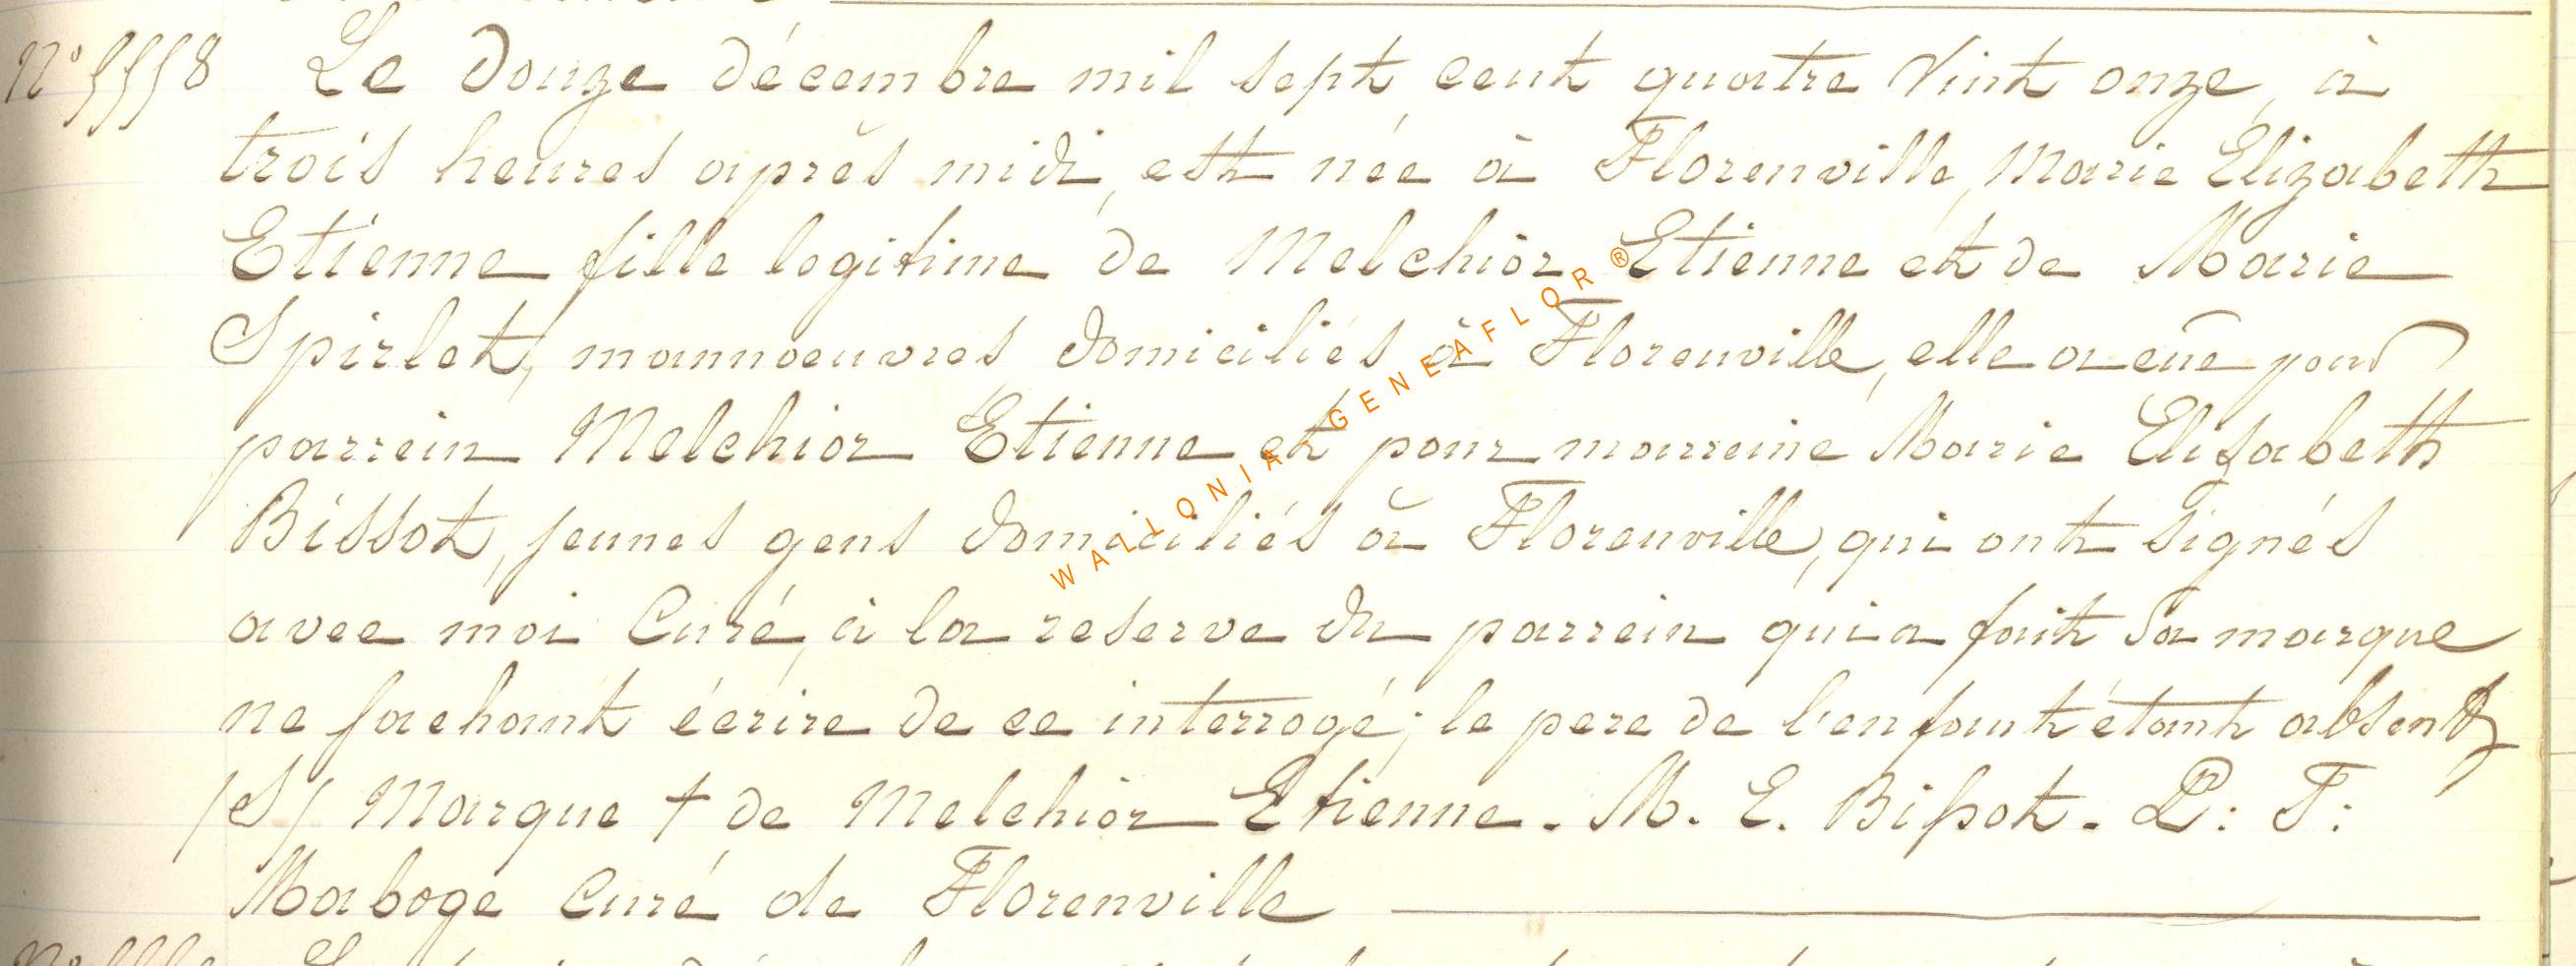 Nº 5558 Le douze décembre mil sept cent quatre vint onze, à
trois heures après midi, est née à Florenville, Marie Élizabeth
Etienne fille legitime de Melchior Etienne et de Marie
Spirlet, mannoeuvres domiciliés à Florenville, elle a eüe pour
parrein Melchior Etienne et pour marreine Marie Elisabeth
Bissot, jeunes gens domiciliés à Florenville, qui ont signés
avec moi Curé, à la reserve du parrein qui a fait sa marque
ne sachant écrire de ce interrogé; le pere de l'enfant étant absent
(S) Marque + de Melchior Etienne. M. E. Bissot. P: F:
Maboge Curé de Florenville
WALLONIA-GENEAFLOR®